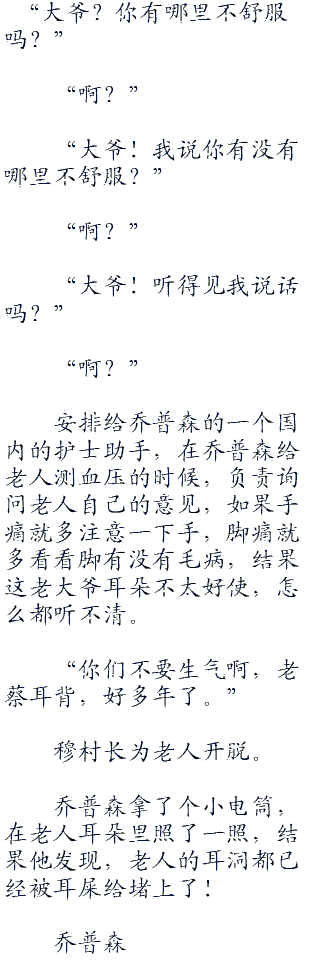 “大爷？你有哪里不舒服
吗？”
“啊？”
“大爷！我说你有没有
哪里不舒服？”
“啊？”
“大爷！听得见我说话
吗？”
“啊？”
安排给乔普森的一个国
内的护士助手，在乔普森给
老人测血压的时候，负责询
问老人自己的意见，如果手
痛就多注意一下手，脚痛就
多看看脚有没有毛病，结果
这老大爷耳朵不太好使，怎
么都听不清。
“你们不要生气啊，老
蔡耳背，好多年了。”
穆村长为老人开脱。
乔普森拿了个小电筒，
在老人耳朵里照了一照，结
果他发现，老人的耳洞都已
经被耳屎给堵上了！
乔普森